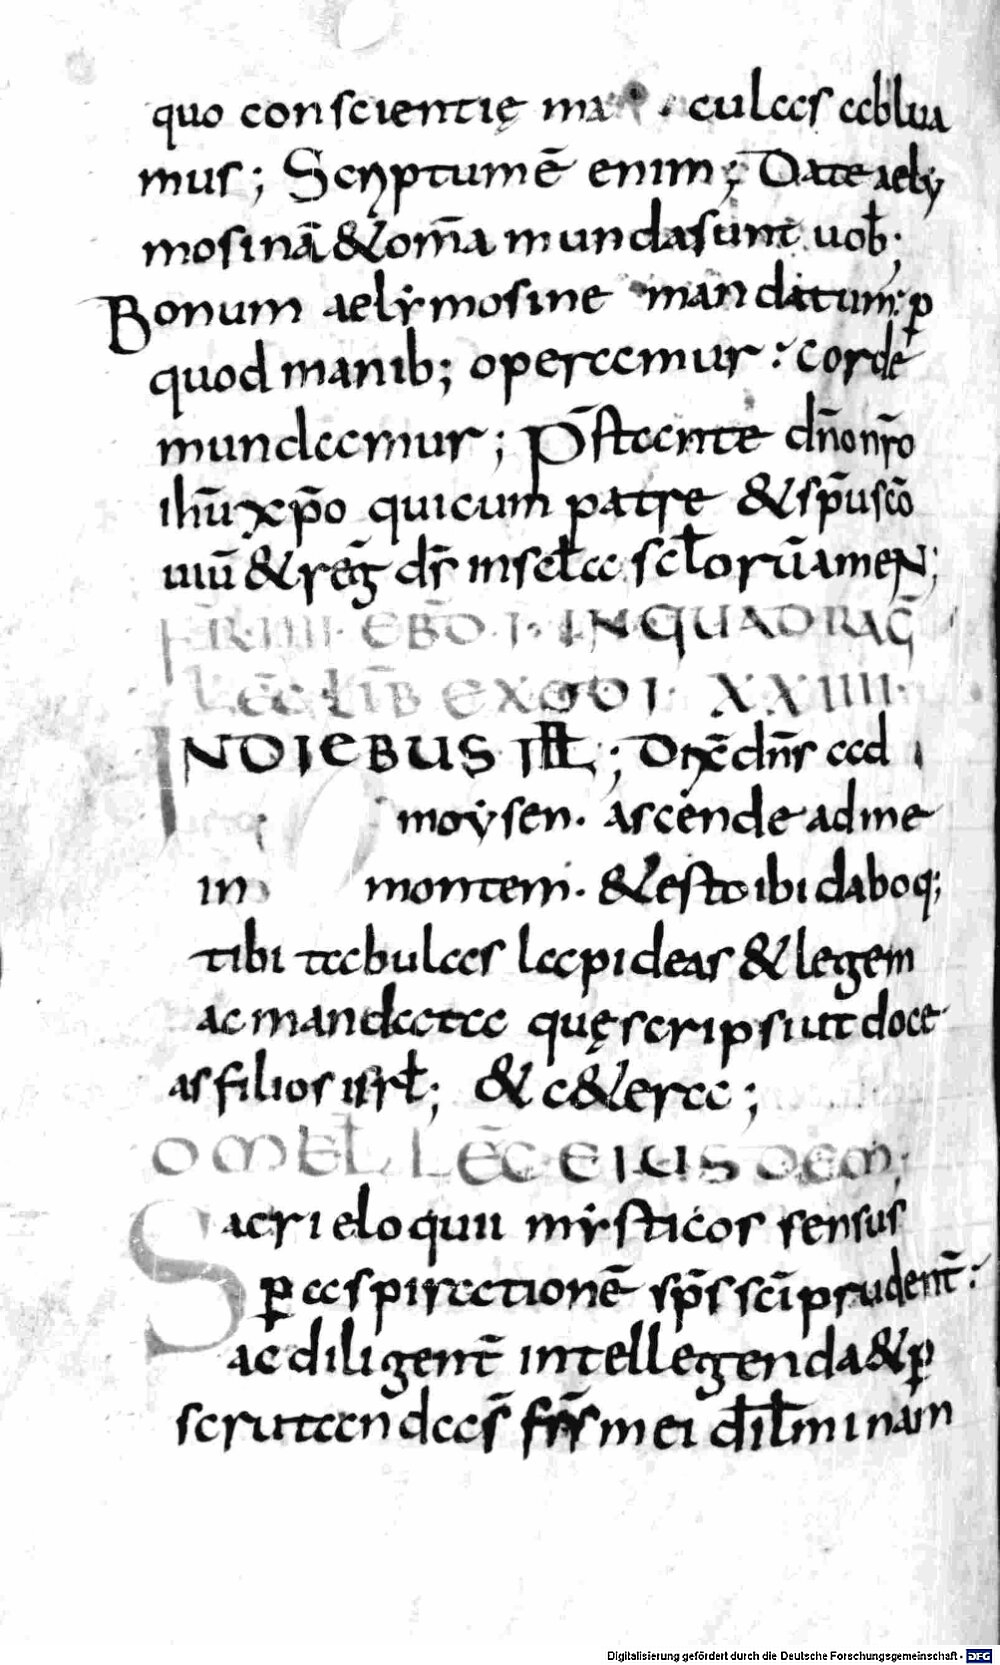 quo conscientię ma culas ablua
mus; Scryptum ē enim; Date aely
mosinā &om̄a munda sunt uob̄;
Bonum aelymosine mandatum; p̱
quod manib; operamur: corde
mundamur; P̄stante dn̄o nr̄o
ihū xp̄o qui cum patre & sp̄u sc̄o
uiū & reḡ ds̄ in scła scłorū ameN;
FR̄ IIII EBD̄ I IN QUADRAḠ
LEC̄ LIB̄ EXODI XXIIII
IN DIEBUS ILL; Dix̄ dn̄s ad
moẏsen. ascende ad me
in montem. & esto ibi daboq;
tibi tabulas lapideas & legem
ac mandata quę scripsi ut doce
as filios isrł; & c&era;
OMEŁ LEC̄ EIUSDEM;
Sacri eloquii mẏsticos sensus
p̱ aspirationē sp̄s sc̄i prudent̄:
ac diligent̄ intellegenda & p̱
scrutandas̄ frs̄ mei dił mi nam